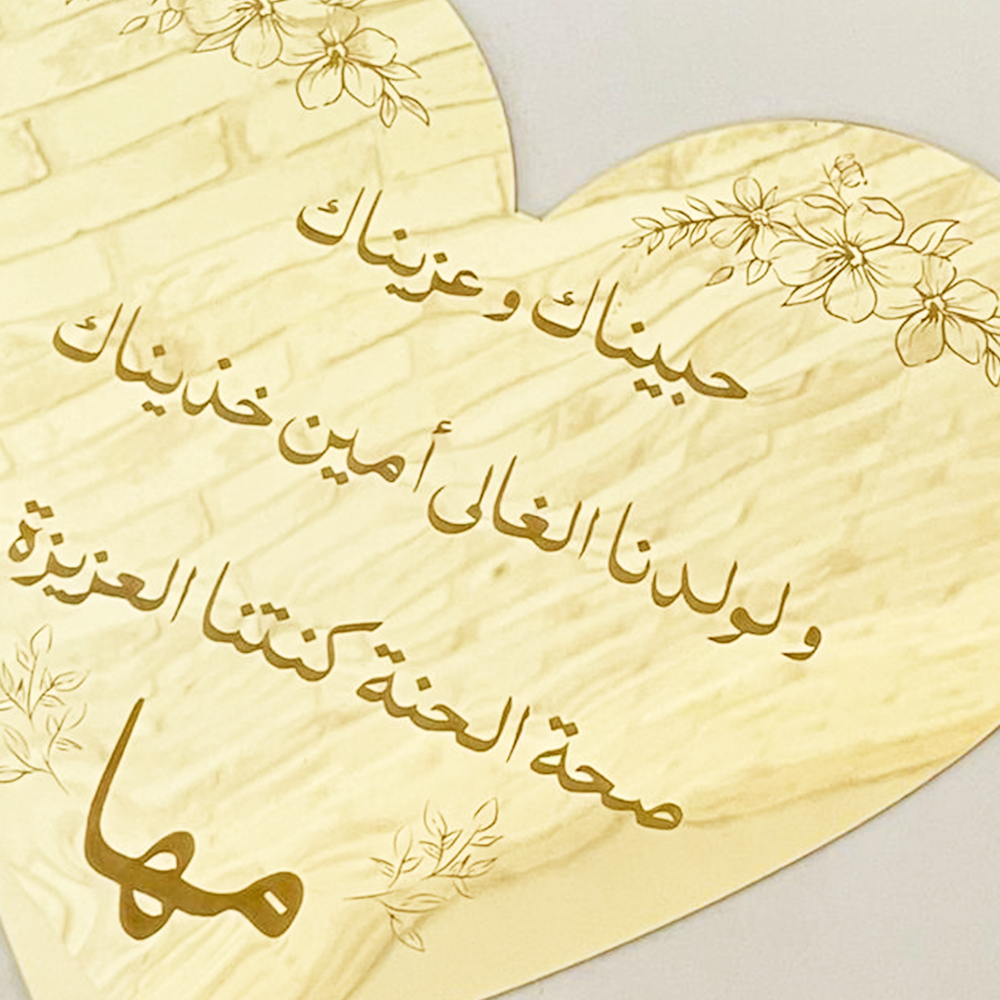 حبيناك وعزيناك
ولولدنا الغالى أمين خذيناك
صحة الحنة كنتنا العزيزة
مها